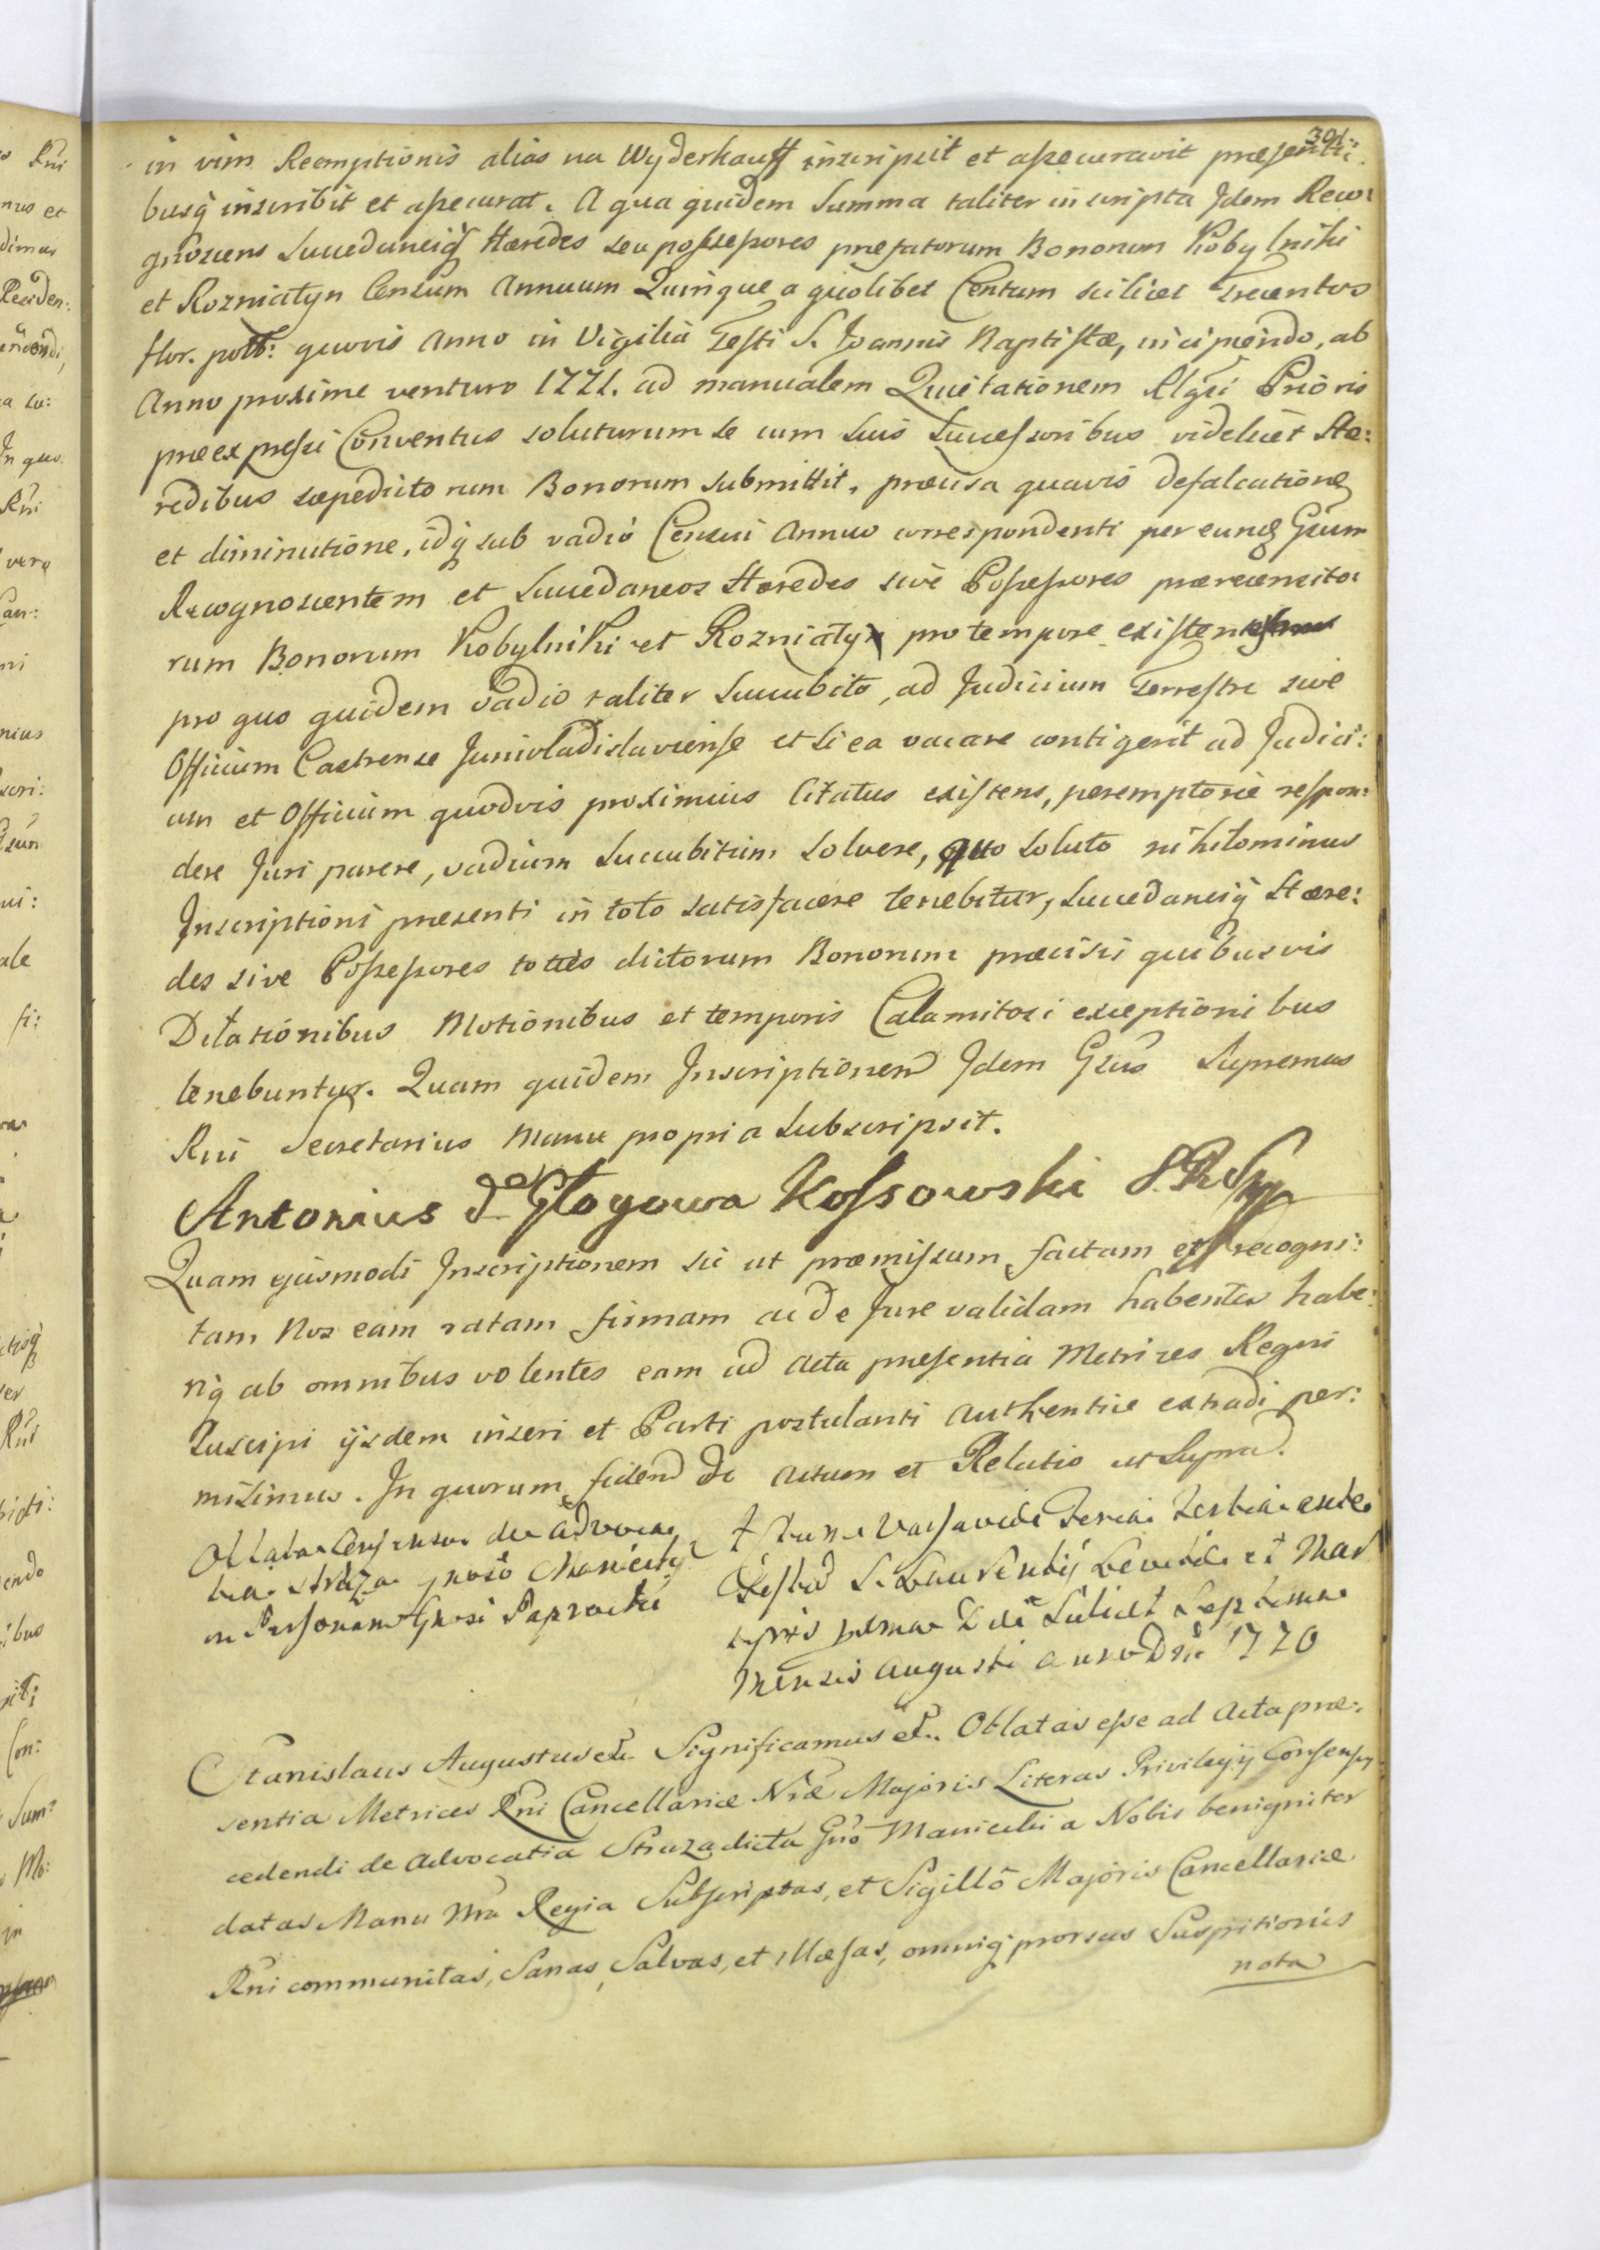 391.
in vim Reemptionis alias na Wyderkauff inscripsit et assecuravit præsenti:
busq̃ inscribit et assecurat. A qua quidem Summa taliter inscripta Idem Reco:
gnoscens Succedaneiq̃ Hæredes seu possessores præfatorum Bonorum Kobylniki
et Rozniatyn Censum Annuum Quinque a quolibet Centum scilicet Trecentos
flor. poll: quovis Anno in Vigilia Festi S. Joannis Baptistæ, incipiendo, ab
Anno proxime venturo 1771. ad manualem Quietationem Rlgsi Prioris
præexpressi Conventus soluturum se cum suis Successoribus videlicet Hæ:
redibus sæpedictorum Bonorum submittit, præcisa quavis defalcatione
et diminutione, idq̃ sub vadio Censui Annuo correspondenti per eund Gsum
Recognoscentem et Succedaneos Hæredes sive Possessores prærecensito:
rum Bonorum Kobylniki et Rozniatyn pro tempore existen
pro quo quidem vadio taliter Succubito, ad Judicium Terrestre sive
Officium Castrense Junivladislaviense et si ea vacare contigerit ad Judici:
um et Officium quodvis proximius Citatus existens, peremptorie respon:
dere Juri parere, vadium Succubitum solvere, quo soluto nihilominus
Inscriptioni præsenti in toto satisfacere tenebitur, Succedaneiq̃ Hære:
des sive Possessores toties dictorum Bonorum præcisis quibusvis
Dilationibus Motionibus et temporis Calamitosi exceptionibus
tenebuntur. Quam quidem Inscriptionem Idem Gsus Supremus
Rni Secretarius Manu propria Subscripsit.
Antonius de Głogowa Kossowski
Quam ejusmodi Inscriptionem sic ut præmissum factam et recogni:
tam Nos eam ratam firmam ac de Jure validam habentes habe:
riq̃ ab omnibus volentes eam ad Acta præsentia Metrices Regni
Suscipi ijsdem inseri et Parti postulanti authentice extradi per:
misimus. In quorum fidem &c Actum et Relatio ut Supra.
Oblata Consensus de Advoca
tia Struza gnoso Manicki
in Personam Gnosi Paprocki
Actum Varsaviæ Feria Tertia ante
Festum S. Laurentij Levitæ et Mar
tyris prima Die Scilicet Septima
Mensis Augusti anno Dni 1770
Stanislaus Augustus etc. Significamus etc. Oblatas esse ad Acta præ:
sentia Metrices Rni Cancellariæ Nræ Majoris Literas Privilegij Consensus
cedendi de Advocatia Struza dicta Gno Manicki a Nobis benigniter
datas Manu Nra Regia Subscriptas, et Sigillo Majoris Cancellariæ
Rni communitas, Sanas, Salvas, et illæsas, omniq̃ prorsus Suspitionis
nota